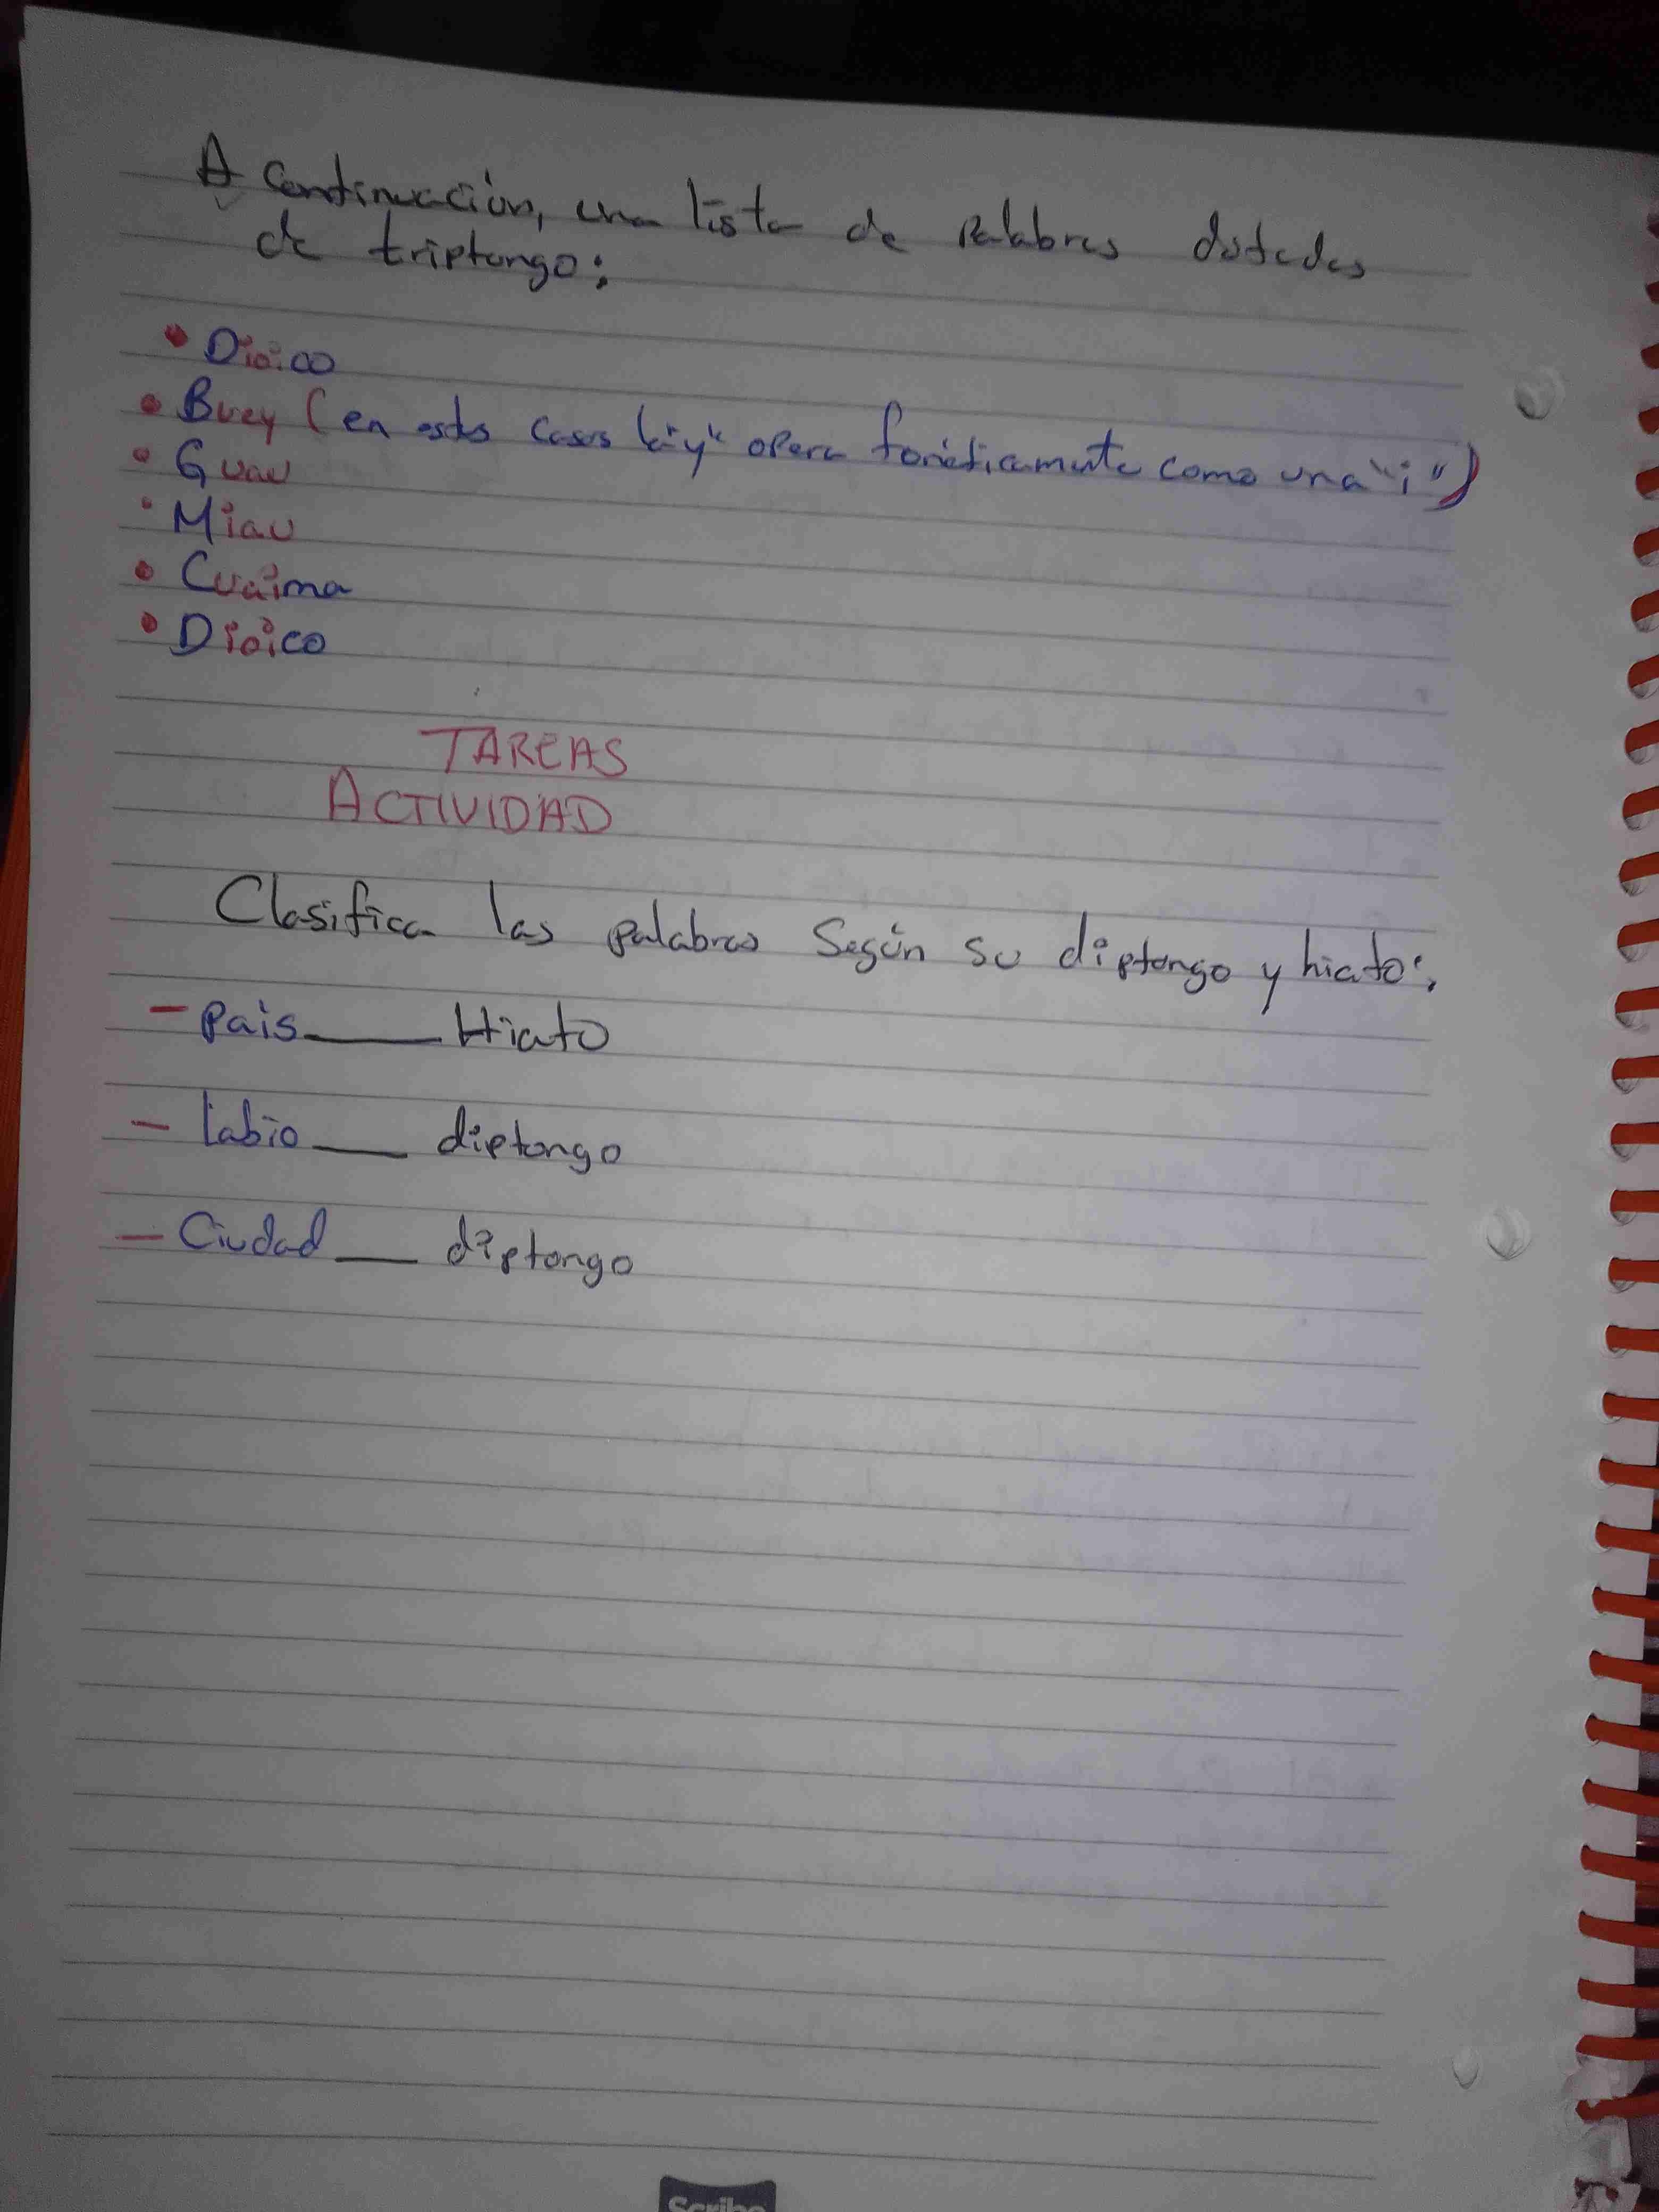 A Continuación, una lista de palabras dotadas
de triptongo:
• Dioico
• Buey (en estos casos la "y" opera fonéticamente como una "i")
• Guau
• Miau
• Cuaima
• Dioico
TAREAS
ACTIVIDAD
Clasifica las palabras Según su diptongo y hiato:
- pais ___ Hiato
- labio ___ diptongo
- Ciudad ___ diptongo
Scribe